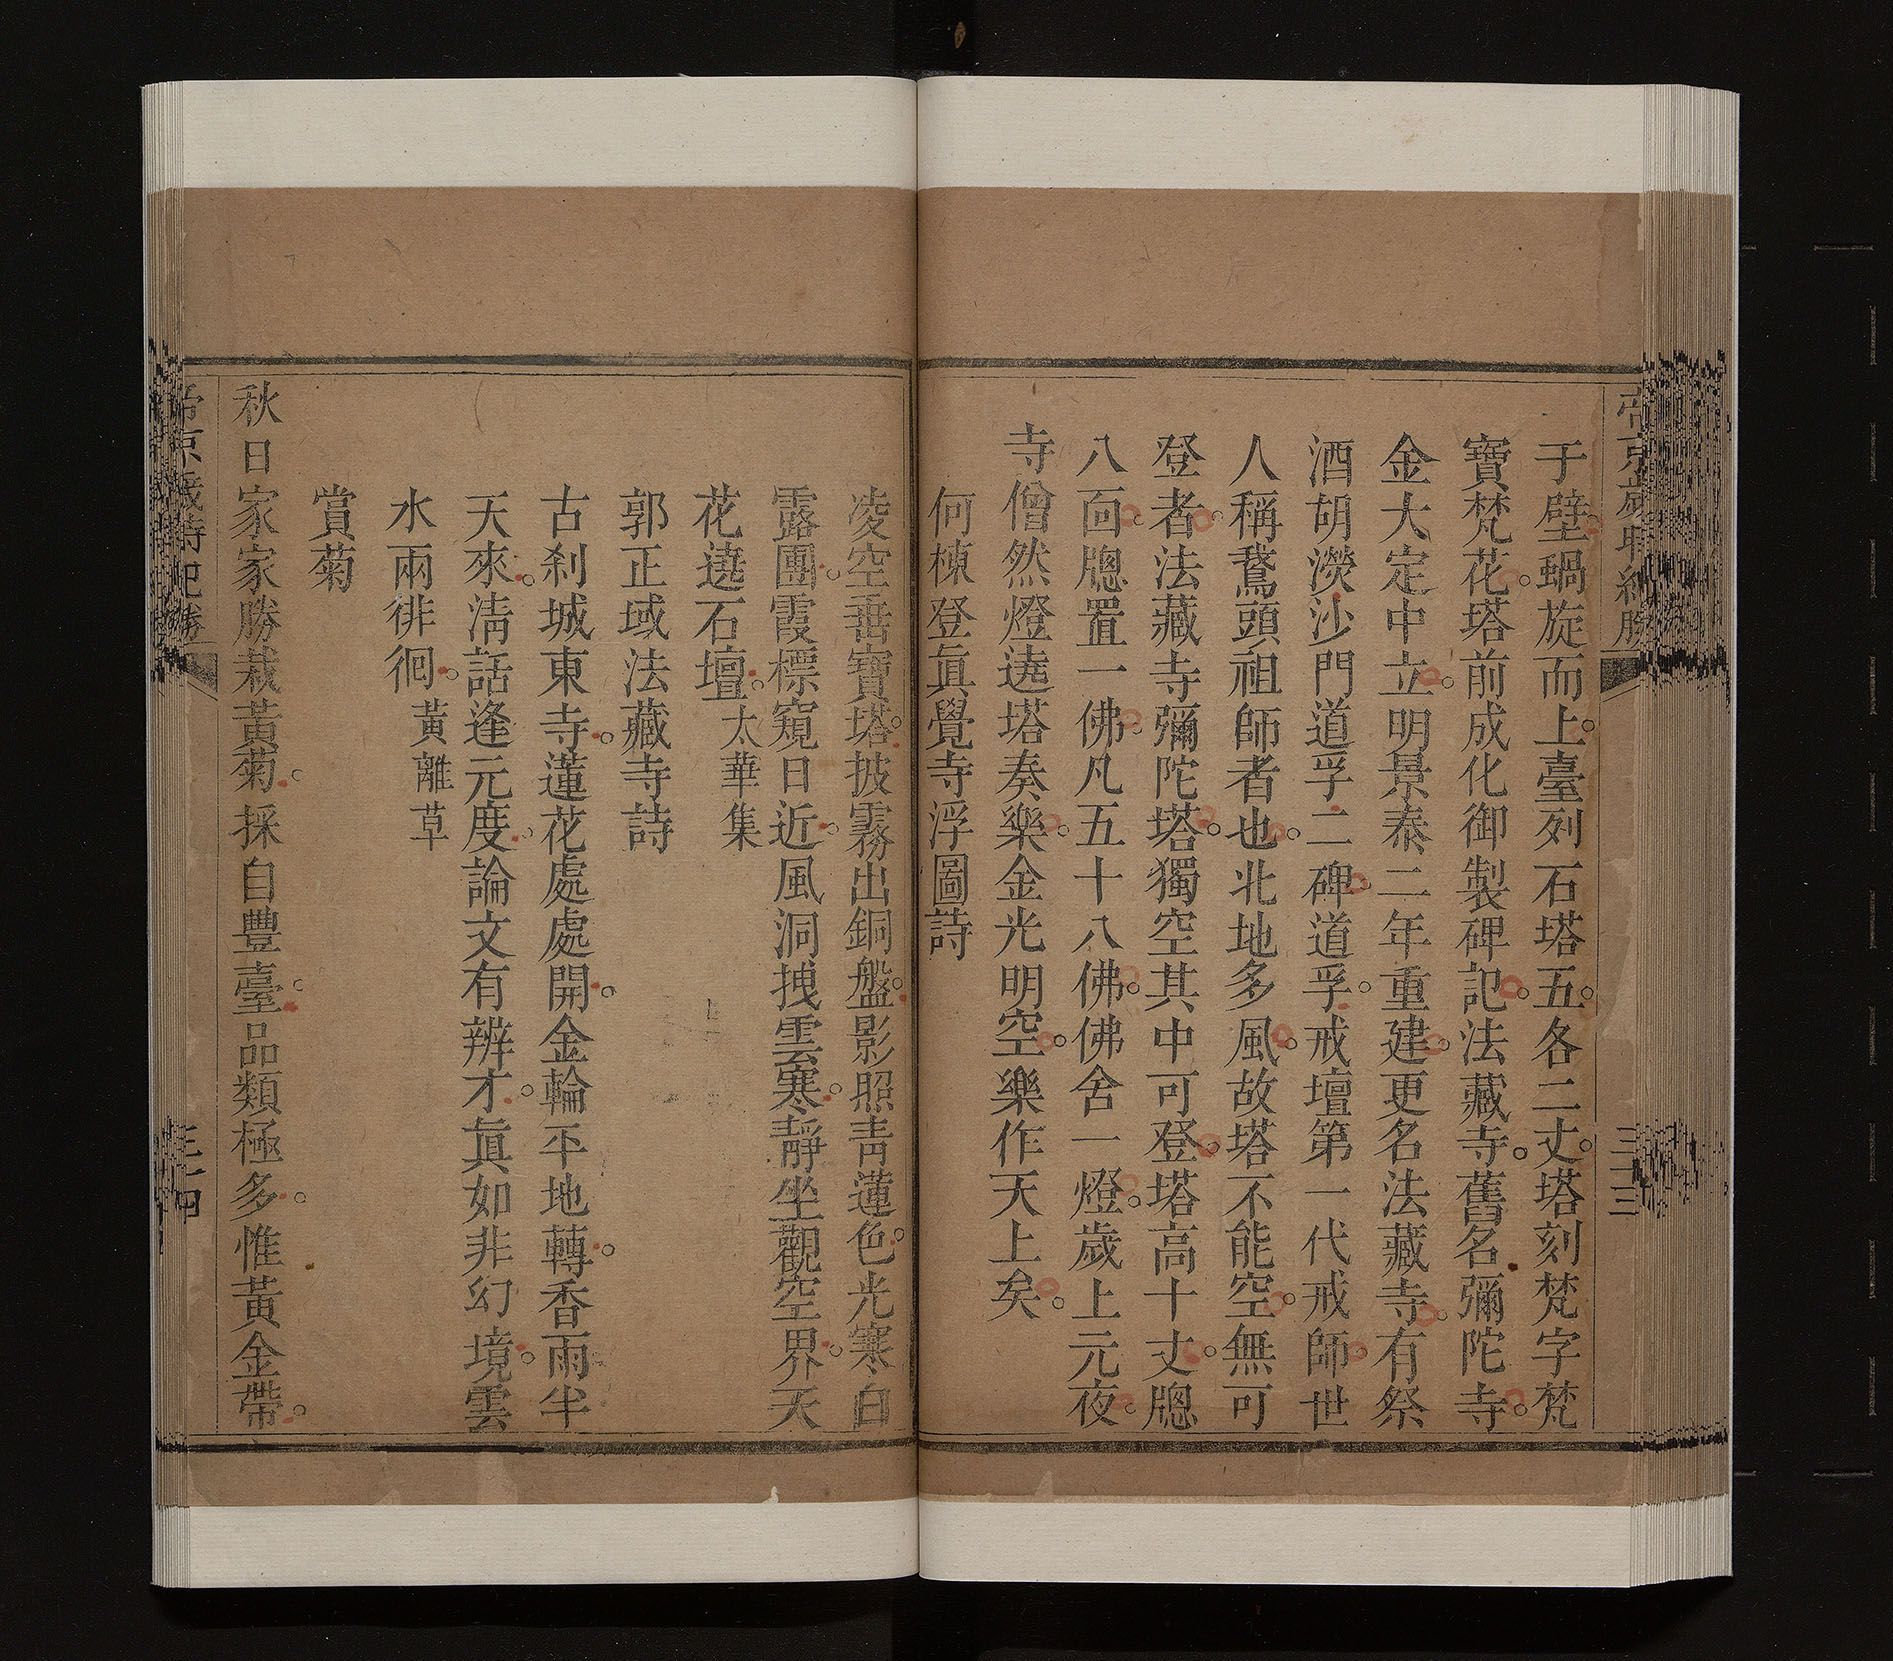 帝京歲時紀勝
三十三
于壁蝸旋而上臺列石塔五各二丈塔刻梵字梵
寶梵花塔前成化御製碑記法藏寺舊名彌陀寺
金大定中立明景泰二年重建更名法藏寺有祭
酒胡濙沙門道孚二碑道孚戒壇第一代戒師世
人稱鵞頭祖師者也北地多風故塔不能空無可
登者法藏寺彌陀塔獨空其中可登塔高十丈牕
八面牕置一佛凡五十八佛佛舍一燈歲上元夜
寺僧然燈遶塔奏樂金光明空樂作天上矣
何棟登眞覺寺浮圖詩
凌空垂寶塔披霧出銅盤影照青蓮色光寒白
露團霞標窺日近風洞拽雲寒靜坐觀空界天
花遶石壇太華集
郭正域法藏寺詩
古刹城東寺蓮花處處開金輪平地轉香雨半
天來清話逢元度論文有辨才眞如非幻境雲
水兩徘徊黃離草
賞菊
秋日家家勝栽黃菊採自豐臺品類極多惟黃金帶
帝京歲時紀勝
三十四